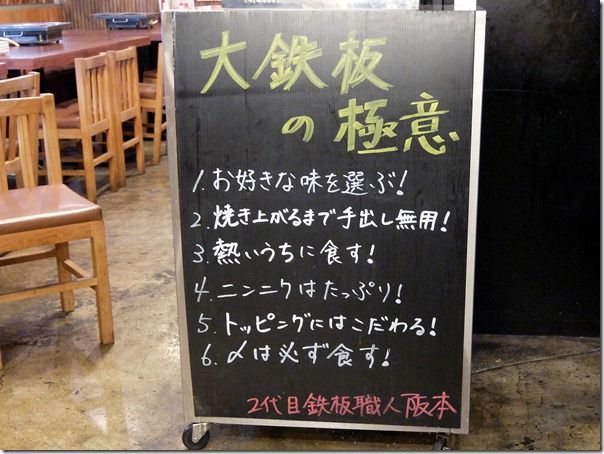 大鉄板
の極意
1. お好きな味を選ぶ!
2. 焼き上がるまで手出し無用!
3. 熱いうちに食す!
4. ニンニクはたっぷり!
5. トッピングにはこだわる!
6. 〆は必ず食す!
2代目鉄板職人阪本